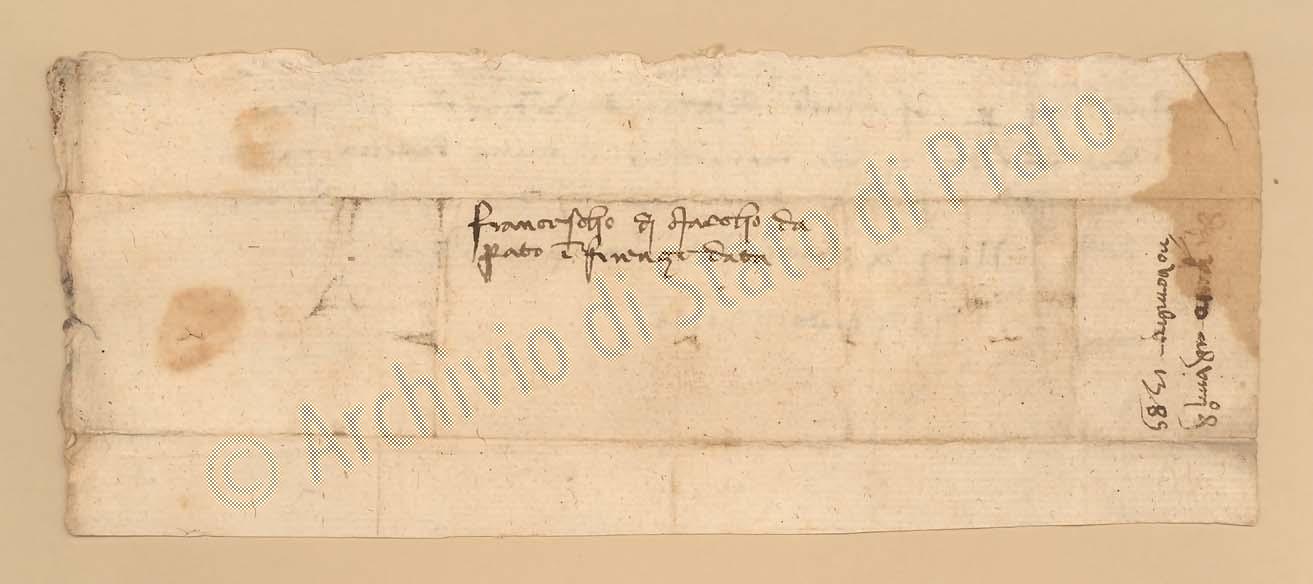 francischo dj Marcho da
prato ĩ firenze data
novembre 1389
© Archivio di Stato di Prato